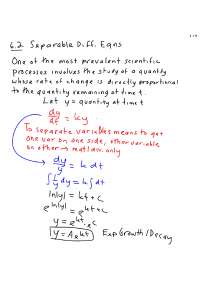 6.2 Separable Diff. Eqns
One of the most prevalent scientific
processes involves the study of a quantity
whose rate of change is directly proportional
to the quantity remaining at time t.
Let y = quantity at time t
dy/dt = ky
To separate variables means to get
one var. on one side, other variable
on other → mult/div. only
dy/y = k dt
∫ 1/y dy = k ∫ dt
ln|y| = kt + c
e^ln|y| = e^kt+c
y = e^kt · e^c
y = Ae^kt Exp Growth/Decay